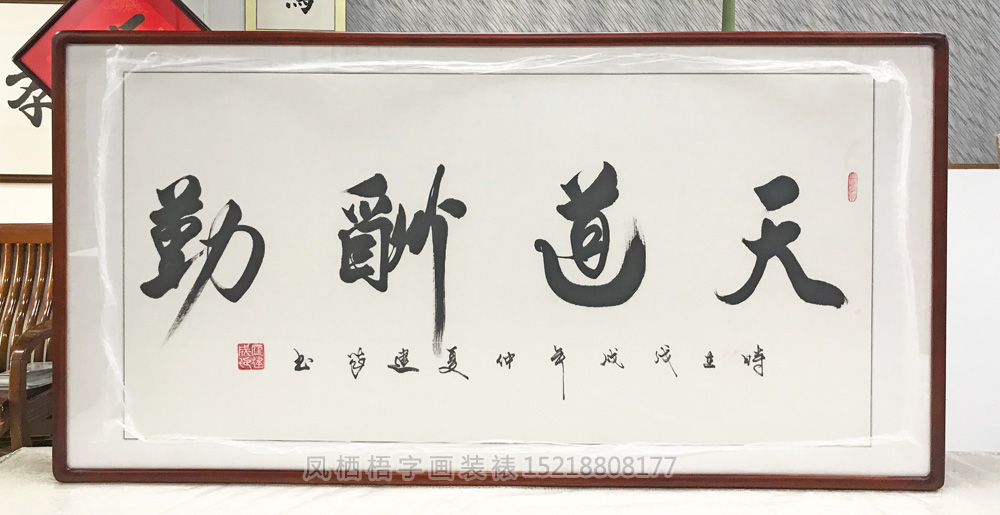 天道酬勤
時在戊戌年仲夏建
书
凤栖梧字画装裱15218808177